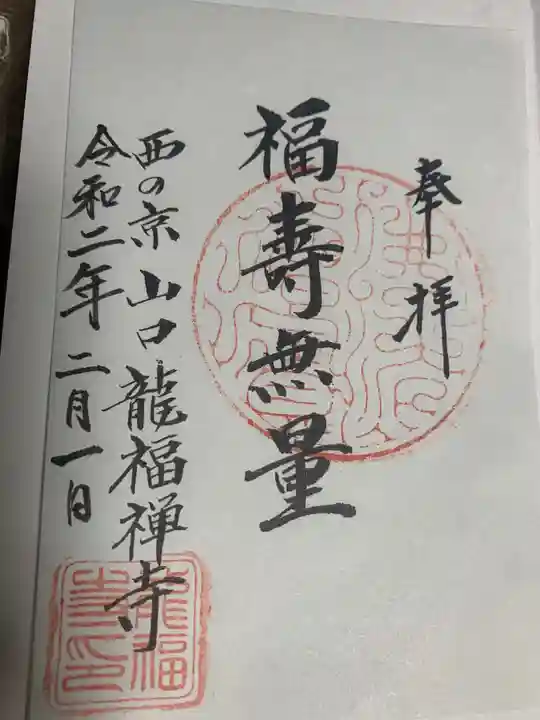 奉拝
福壽無量
西の京 山口 龍福禅寺
令和二年 二月一日
龍福
寺印